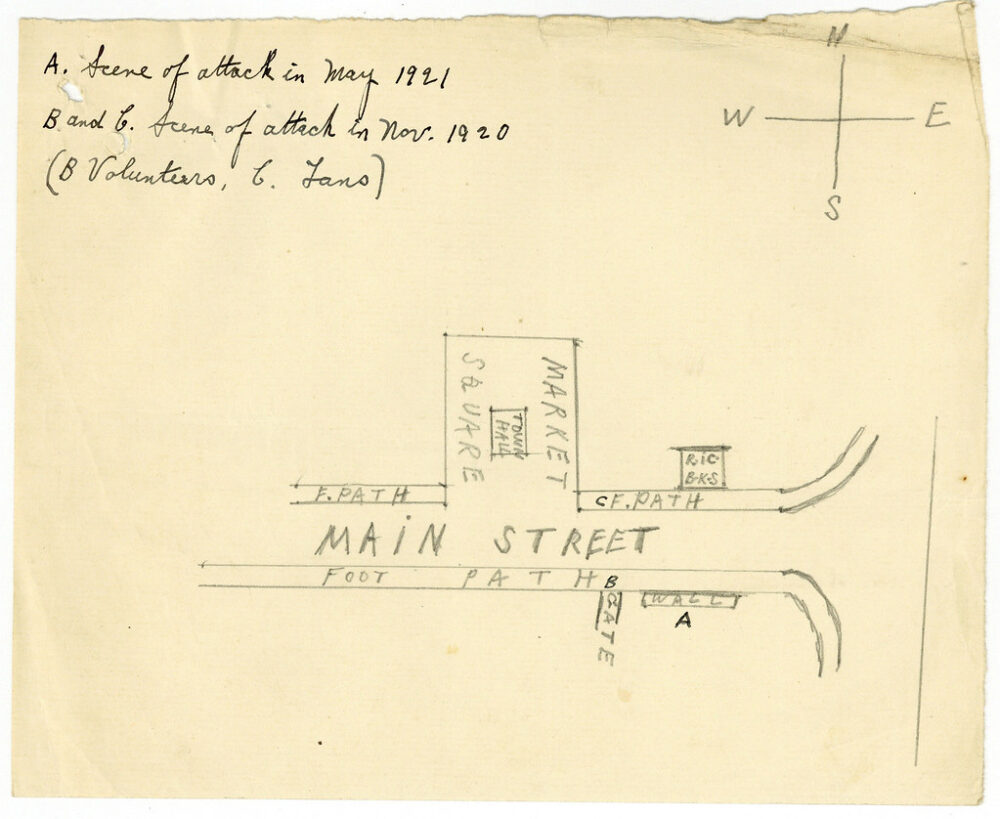 A. Scene of attack in May 1921
B and C. Scene of attack in Nov. 1920
(B Volunteers, C. Tans)
N
W E
S
MARKET
SQUARE
TOWN
HALL
RIC
B-K-S
F. PATH
C F. PATH
MAIN STREET
FOOT PATH B
GATE
WALL
A